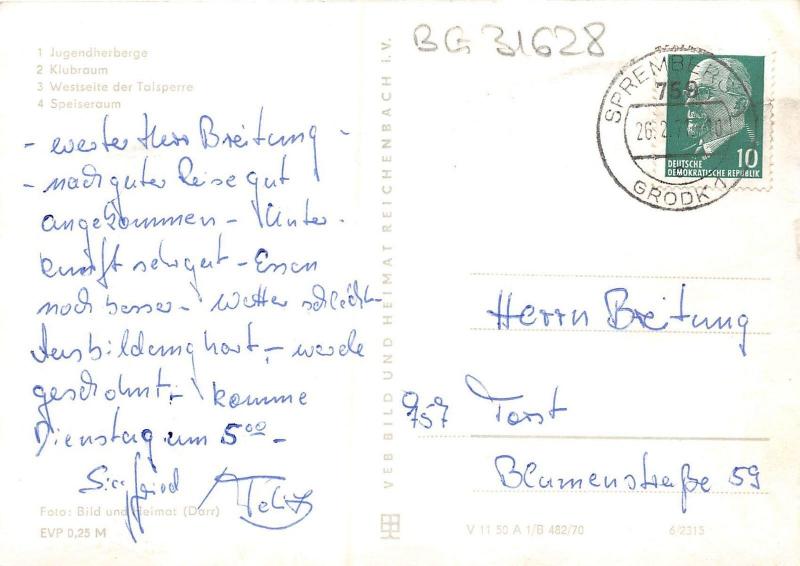 BG 31628
1 Jugendherberge
2 Klubraum
3 Westseite der Talsperre
4 Speiseraum
- werter Herr Breitung -
- nach guter Reise gut
angekommen - Unter-
kunft sehr gut - Essen
noch besser - Wetter schlecht -
Ausbildung hart - werde
geschont - komme
Dienstag um 5⁰⁰ -
Siegfried
Foto: Bild und Heimat (Darr)
EVP 0,25 M
VEB BILD UND HEIMAT REICHENBACH I. V.
SPREMBERG 1
759
26.2.71
GRODK 1
DEUTSCHE
DEMOKRATISCHE REPUBLIK
10
Herrn Breitung
757 Forst
Blumenstraße 59
V 11 50 A 1/B 482/70
6/2315